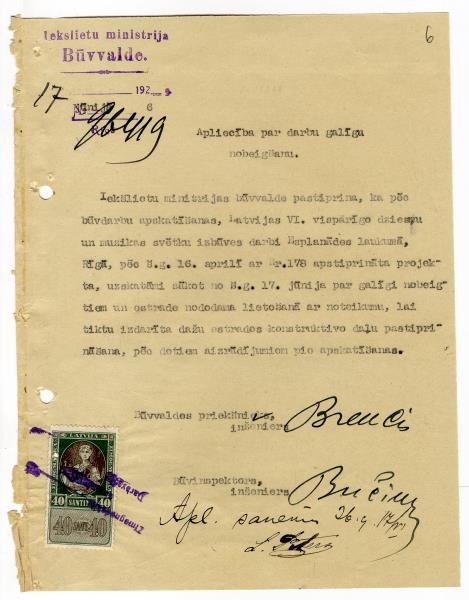 Iekšlietu ministrija
Būvvalde.
6
192 6
17 jūnijā
Apliecība par darbu galīgu
nobeigšanu.
Iekšlietu minitrijas būvvalde pastiprina, ka pēc
būvdarbu apskatīšanas, Latvijas VI. vispārīgo dziesmu
un muzikas svētku izbūves darbi Esplanādes laukumā,
Rīgā, pēc š.g. 16. aprilī ar Nr.178 apstiprināta projek-
ta, uzskatāmi sākot no š.g. 17. jūnija par galīgi nobeig-
tiem un estrade nododama lietošanā ar noteikumu, lai
tiktu izdarīta dažu estrades konstruktivo daļu pastipri-
nāšana, pēc dotiem aizrādījumiem pie apskatīšanas.
Būvvaldes priekšnieks,
inženiers
Būvinspektors,
inženiers
Apl. saņēmu 26.g. 17/VI
LATVIJA
40 SANTIMI 40
40 SANT. 40